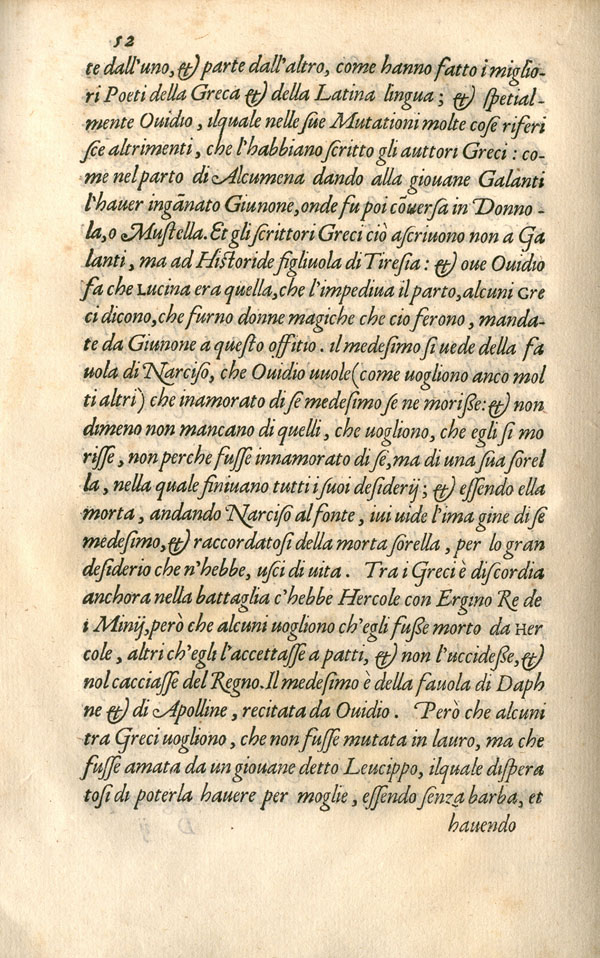 52
te dall'uno, & parte dall'altro, come hanno fatto i miglio-
ri Poeti della Greca & della Latina lingua; & ſpetial-
mente Ouidio, ilquale nelle ſue Mutationi molte coſe riferi
ſce altrimenti, che l'habbiano ſcritto gli auttori Greci: co-
me nel parto di Alcumena dando alla giouane Galanti
l'hauer ingãnato Giunone, onde fu poi cõuerſa in Donno-
la, o Muſtella. Et gli ſcrittori Greci ciò aſcriuono non a Ga
lanti, ma ad Hiſtoride figliuola di Tireſia: & oue Ouidio
fa che Lucina era quella, che l'impediua il parto, alcuni Gre
ci dicono, che furno donne magiche che cio ferono, manda-
te da Giunone a queſto offitio. il medeſimo ſi uede della fa
uola di Narciſo, che Ouidio uuole (come uogliono anco mol
ti altri) che inamorato di ſe medeſimo ſe ne moriſſe: & non
dimeno non mancano di quelli, che uogliono, che egli ſi mo
riſſe, non perche fuſſe innamorato di ſe, ma di una ſua ſorel
la, nella quale finiuano tutti i ſuoi deſiderij; & eſſendo ella
morta, andando Narciſo al fonte, iui uide l'ima gine di ſe
medeſimo, & raccordatoſi della morta ſorella, per lo gran
deſiderio che n'hebbe, uſci di uita. Tra i Greci è diſcordia
anchora nella battaglia c'hebbe Hercole con Ergino Re de
i Minij, però che alcuni uogliono ch'egli fuſſe morto da Her
cole, altri ch'egli l'accettaſſe a patti, & non l'uccideſſe, &
nol cacciaſſe del Regno. Il medeſimo è della fauola di Daph
ne & di Apolline, recitata da Ouidio. Però che alcuni
tra Greci uogliono, che non fuſſe mutata in lauro, ma che
fuſſe amata da un giouane detto Leucippo, ilquale diſpera
toſi di poterla hauere per moglie, eſſendo ſenza barba, et
hauendo